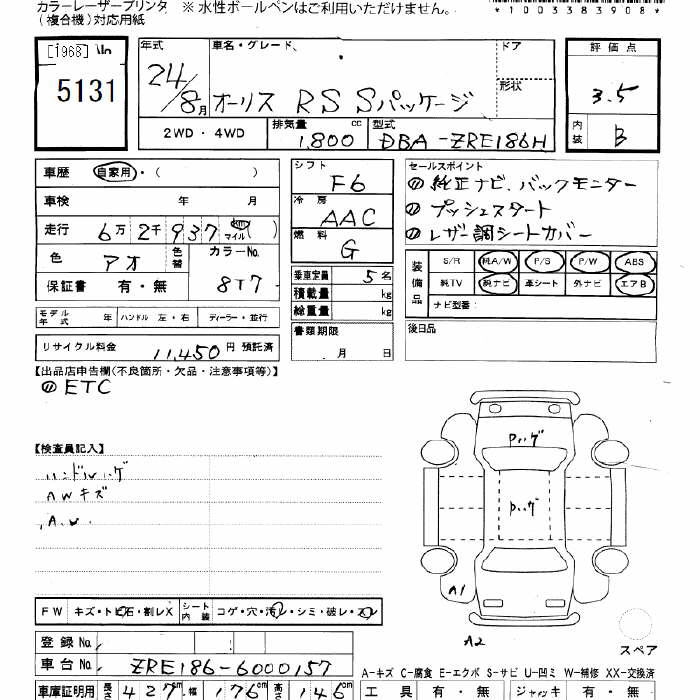 カラーレーザープリンタ ※ 水性ボールペンはご利用いただけません。
(複合機)対応用紙
*1003383908*
[1968]
5131
年式 24/8月
車名・グレード オーリス RS Sパッケージ
ドア
形状
2WD・4WD
排気量 1,800 cc
型式 DBA-ZRE186H
評価点 3.5
内装 B
車歴 自家用・( )
車検 年 月
走行 6万2千937 km マイル ( )
色 アオ 色替
カラーNo. 8T7
保証書 有・無
モデル年式 年 ハンドル 左・右 ディーラー・並行
リサイクル料金 11,450 円 預託済
シフト F6
冷房 AAC
燃料 G
乗車定員 5 名
積載量 kg
総重量 kg
書類期限
月 日
セールスポイント
純正ナビ、バックモニター
プッシュスタート
レザー調シートカバー
装備品 S/R 純A/W P/S P/W ABS
純TV 純ナビ 革シート 外ナビ エアB
ナビ型番:
後日品
【出品店申告欄(不良箇所・欠品・注意事項等)】
ETC
【検査員記入】
ハンドルハゲ
AWキズ
A.W.
Pハゲ
Pハゲ
A1
A2
スペア
FW キズ・トビ石・割レX シート内装 コゲ・穴・汚レ・シミ・破レ・スレ
登録No.
車台No. ZRE186-6000157
A-キズ C-腐食 E-エクボ S-サビ U-凹ミ W-補修 XX-交換済
車庫証明用 長さ 427 cm 幅 176 cm 高さ 146 cm
工具 有・無 ジャッキ 有・無